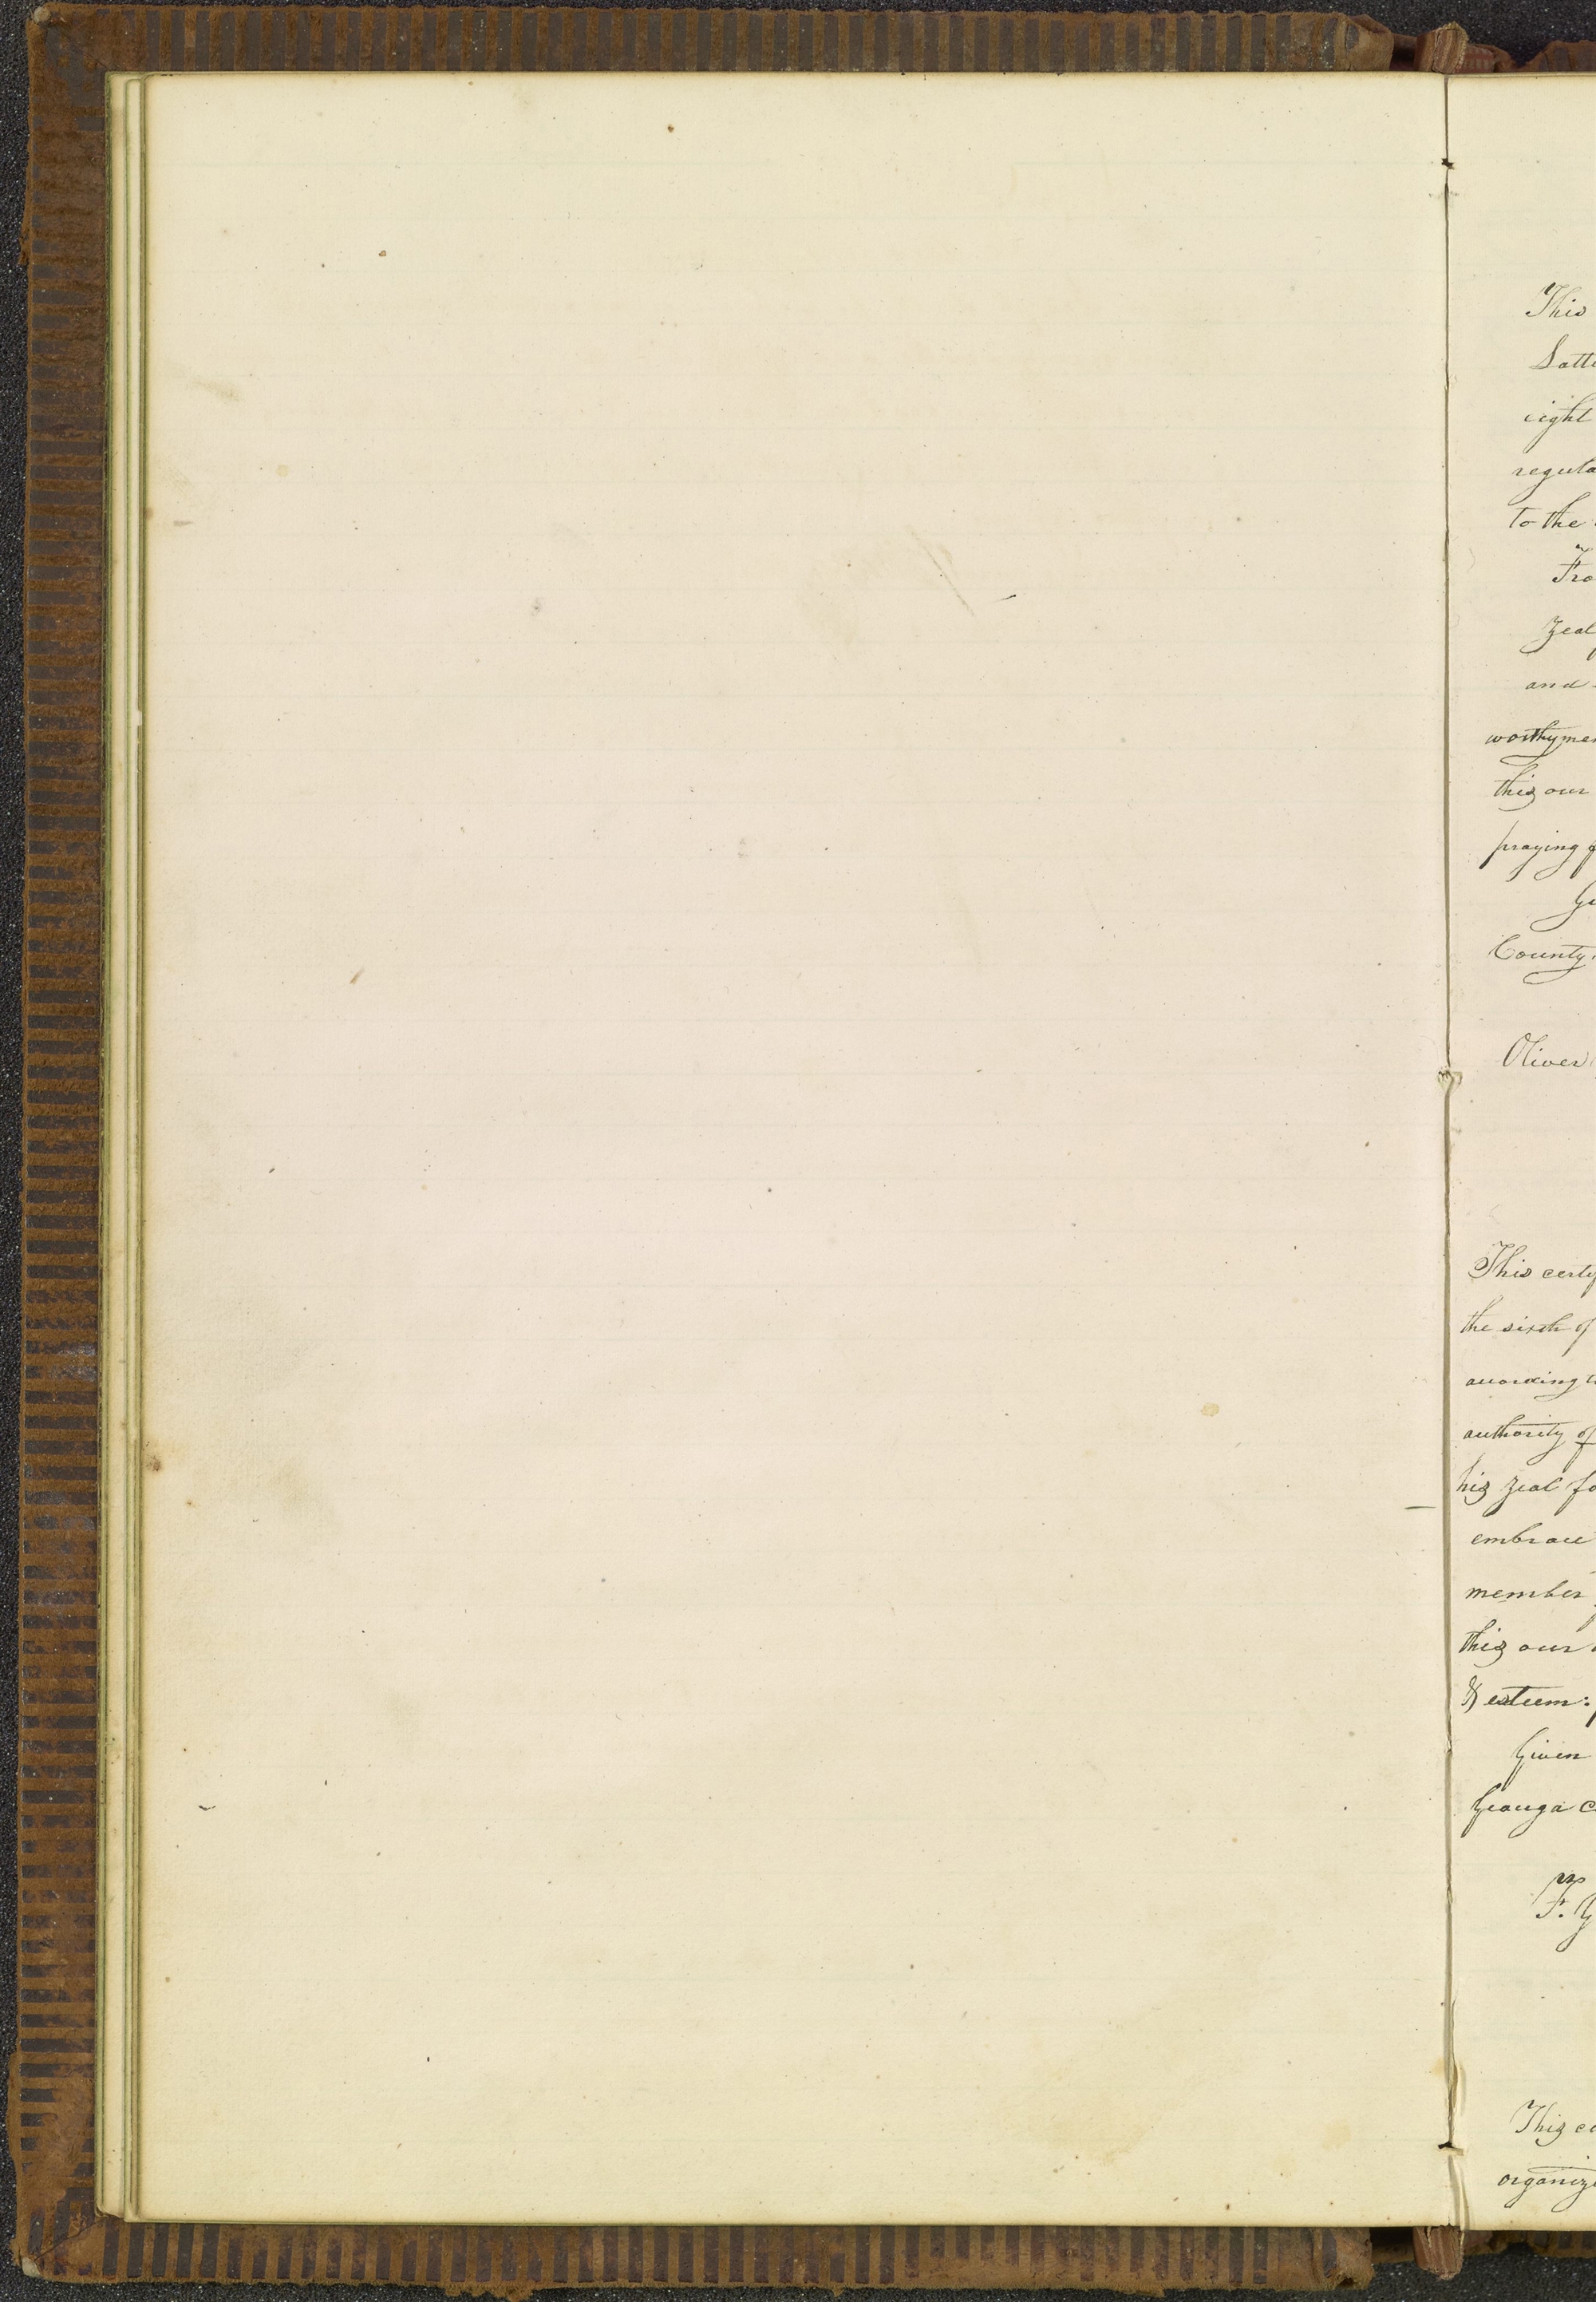 This
Latte
eight
regula
to the
Fro
Zeal
and
worthy mem
this our
praying f
Gi
County
Oliver
This certif
the sixth of
according t
authority of
his zeal fo
embrace
member
this our
& esteem:
Given
Geauga C
F. G
This ce
organize